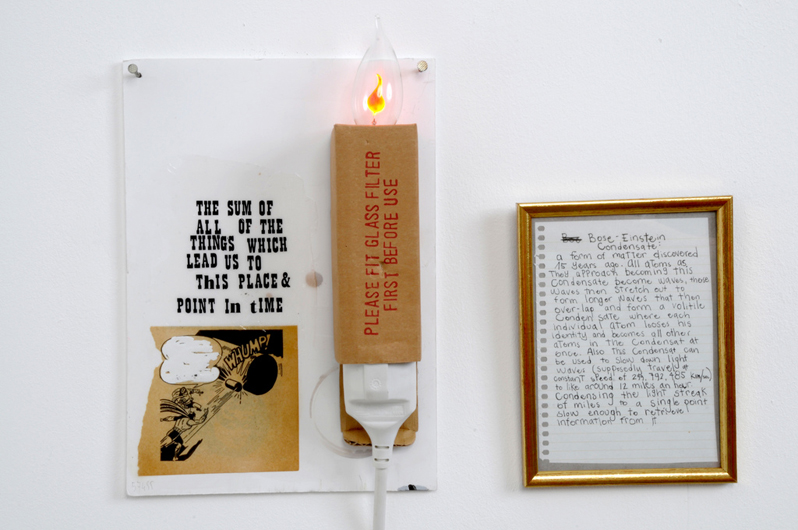 THE SUM OF
ALL OF THE
THINGS WHICH
LEAD US TO
THIS PLACE &
POINT In tIME
WHUMP!
PLEASE FIT GLASS FILTER
FIRST BEFORE USE
Bose-Einstein
Condensate:
a form of matter discovered
15 years ago. All atoms as
they approach becoming this
Condensate become waves, those
waves then stretch out to
form longer waves that then
over-lap and form a volitile
Conden sate where each
individual atom looses his
identity and becomes all other
atoms in the Condensat at
once. Also this Condensat can
be used to slow down light
waves (supposedly travels at
constant speed of 299,792,485 Kmp/h)
to like around 12 miles an hour
Condensing the light streak
of miles to a single point
slow enough to retrieve
information from it